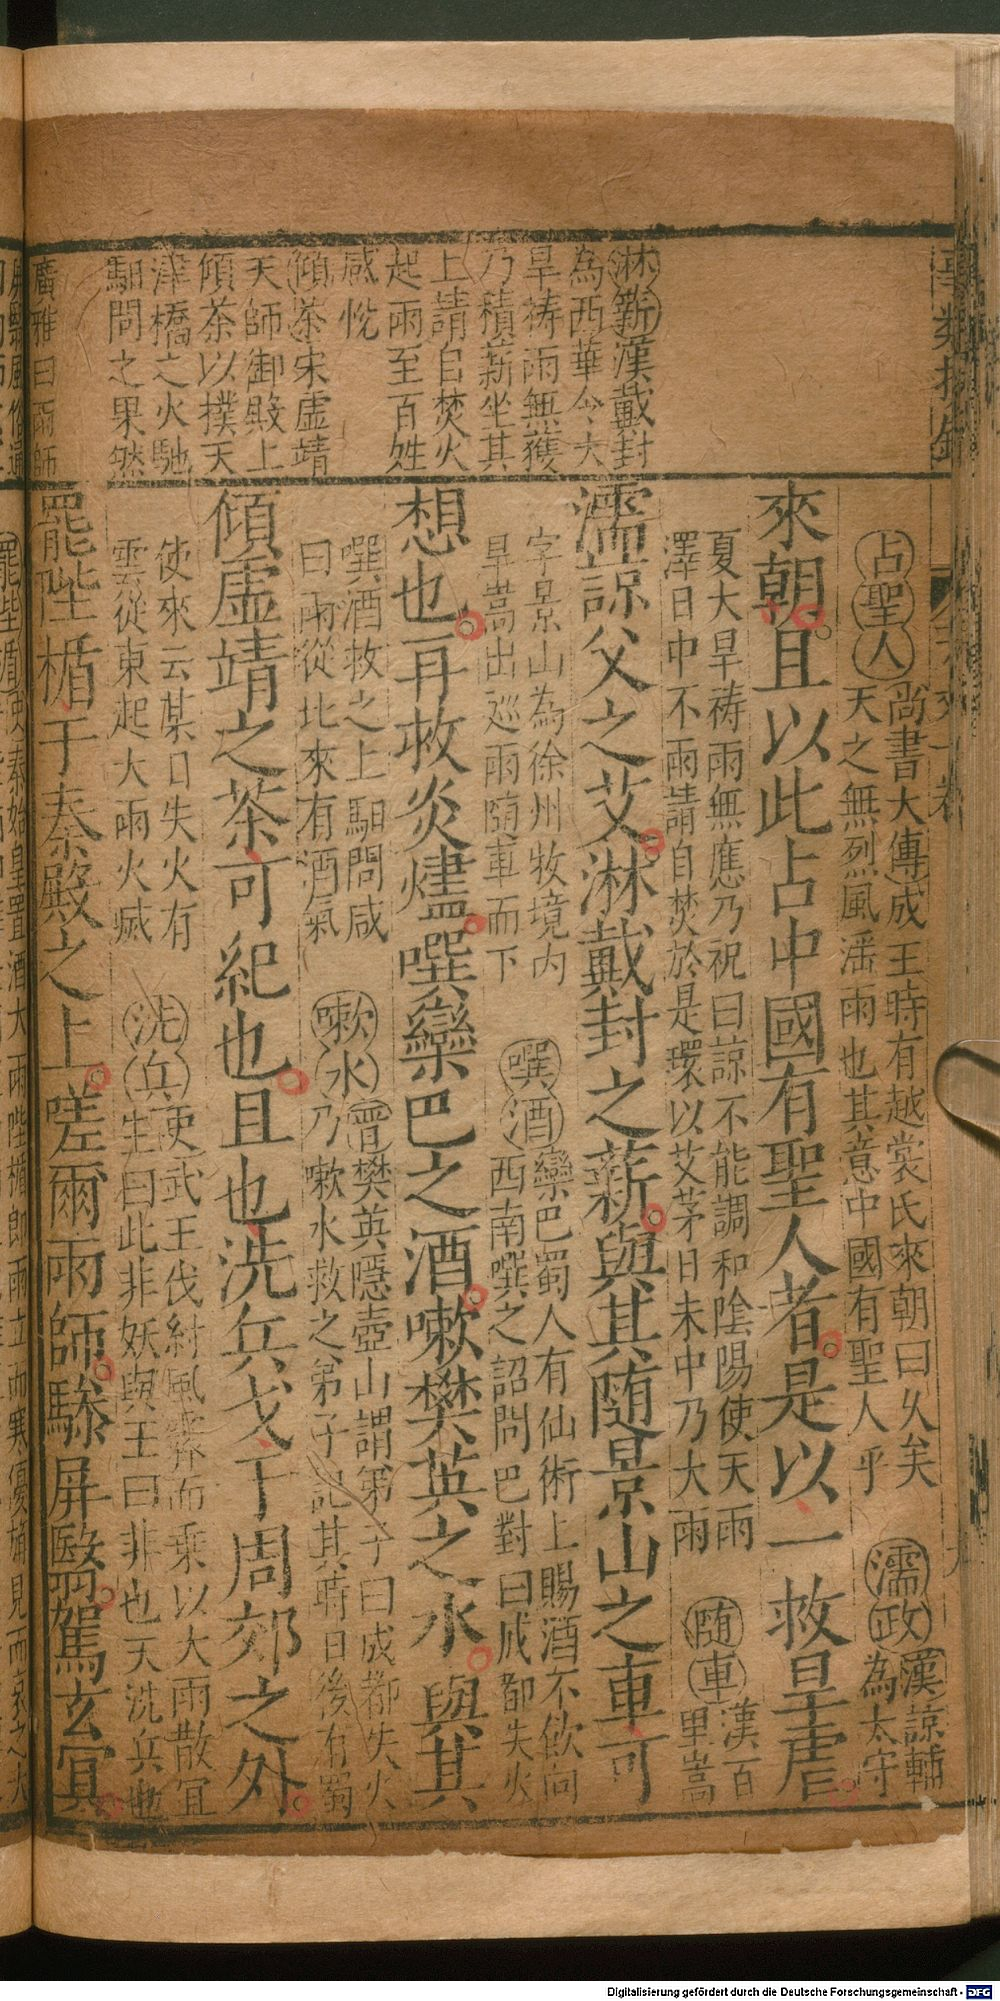 淋薪漢戴封
為西華令大
旱祷雨無獲
乃積薪坐其
上請自焚火
起雨至百姓
感悅
傾茶宋虛靖
天師御殿上
傾茶以撲天
津橋之火馳
馹問之果然
廣雅曰雨師
占聖人
尚書大傳成王時有越裳氏來朝曰久矣
天之無烈風滛雨也其意中國有聖人乎
濡政
漢諒輔
為太守
來朝且以此占中國有聖人者是以一救旱虐
夏大旱祷雨無應乃祝曰諒不能調和陰陽使天雨
澤日中不雨請自焚於是環以艾茅日未中乃大雨
随車
漢百
里嵩
濡諒父之艾淋戴封之薪與其随景山之車可
字景山為徐州牧境内
旱嵩出巡雨随車而下
噀酒
欒巴蜀人有仙術上賜酒不飲向
西南噀之詔問巴對曰成都失火
想也再救炎燼噀欒巴之酒嗽樊英之水與其
噀酒救之上馹問咸
曰雨從北來有酒氣
嗽水
晋樊英隱壺山謂弟子曰成都失火
乃嗽水救之弟子記其時日後有蜀
傾虛靖之茶可紀也且也洗兵戈于周郊之外
使來云某日失火有
雲從東起大雨火滅
洗兵
吏武王伐紂風霽而乗以大雨散宜
生曰此非妖與王曰非也天洗兵也
罷陛楯于秦殿之上嗟爾雨師驂屏翳駕玄冥
Digitalisierung gefördert durch die Deutsche Forschungsgemeinschaft - DFG